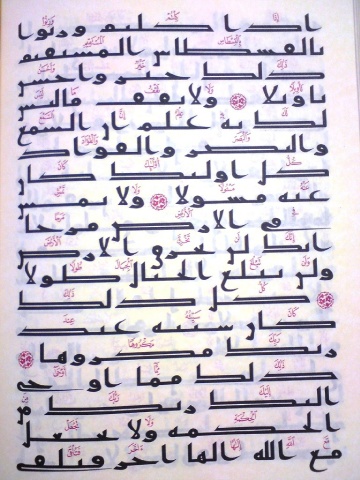 اذا كلتم وزنوا
بالقسطاس المستقيم
ذلك خير واحسن
تاويلا ولا تقف ما ليس
لك به علم ان السمع
والبصر والفواد
كل اوليك كان
عنه مسولا ولا تمش
في الارض مرحا
انك لن تخرق الارض
ولن تبلغ الجبال طولا
كل ذلك
كان سييه عند
ربك مكروها
ذلك مما اوحى
اليك ربك من
الحكمه ولا تجعل
مع الله الها اخر فتلقى